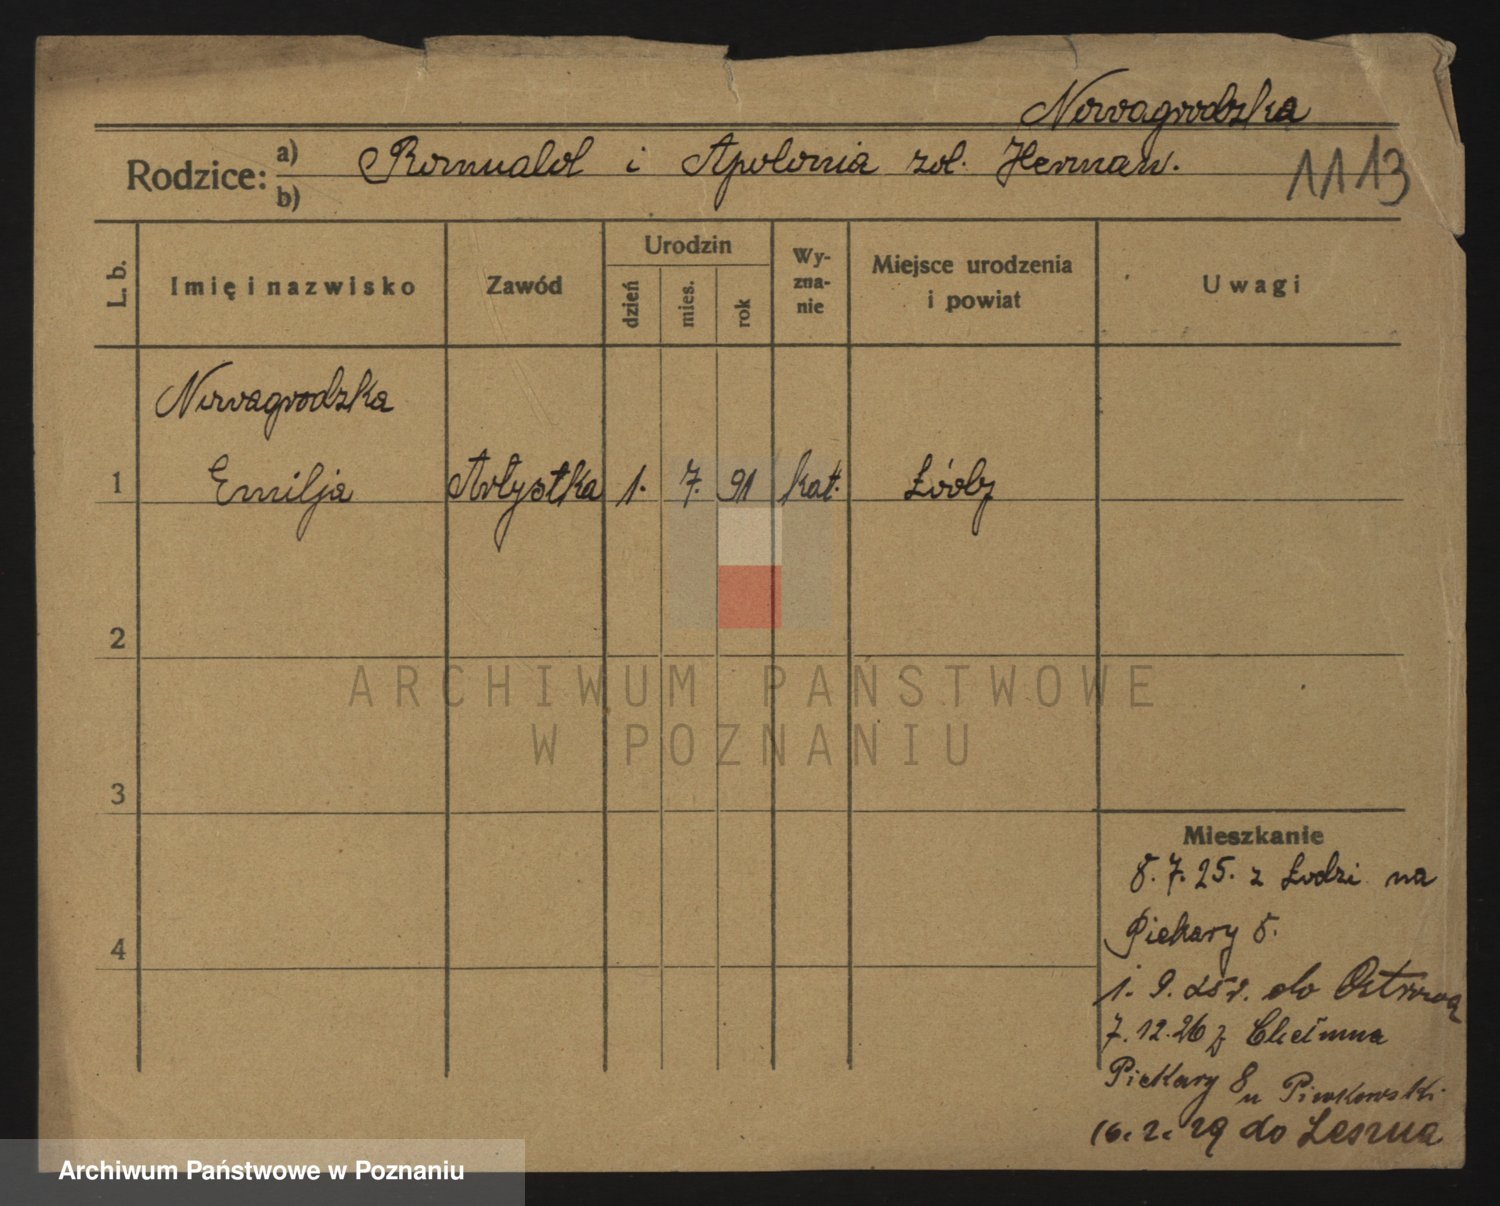 Nowagrodzka
Rodzice: a) Romuald i Apolonia zd. Herman. 1113
b)
L. b. Imię i nazwisko Zawód Urodzin dzień mies. rok Wy-zna-nie Miejsce urodzenia i powiat Uwagi
Nowagrodzka
1 Emilja Artystka 1. 7. 91 kat. Łódź
2
ARCHIWUM PAŃSTWOWE
W POZNANIU
3
Mieszkanie
8. 7. 25. z Łodzi na
Piekary 8.
4
1. 9. 25 r. do Ostrowa
7. 12. 26 z Chełmna
Piekary 8 u Piwkowski
16. 2. 29 do Leszna
Archiwum Państwowe w Poznaniu